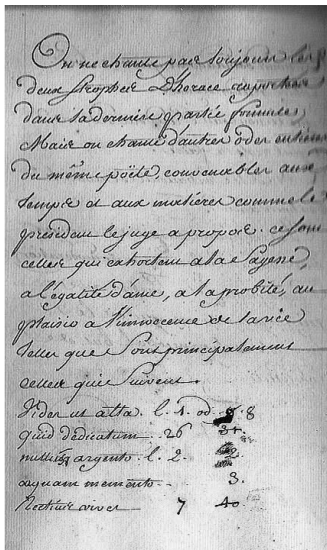 On ne chante pas toujours les
deux strophes d'horace rapportées
dans la derniere partie formule
Mais on chante d'autres odes entieres
du même poëte convenables aux
temps et aux matieres comme le
president le juge a propos. ce sont
celles qui exhortent a la sagesse,
a l'égalité d'ame, a la probité, au
plaisir a l'innocence de la vie
telles que sont principalement
celles qui suivent.
Vides ut alta. l. 1. od. 8
quid dedicatum. 26 31.
nullus argento. l. 2. 2.
æquam memento. 3.
Rectius vives 7 10